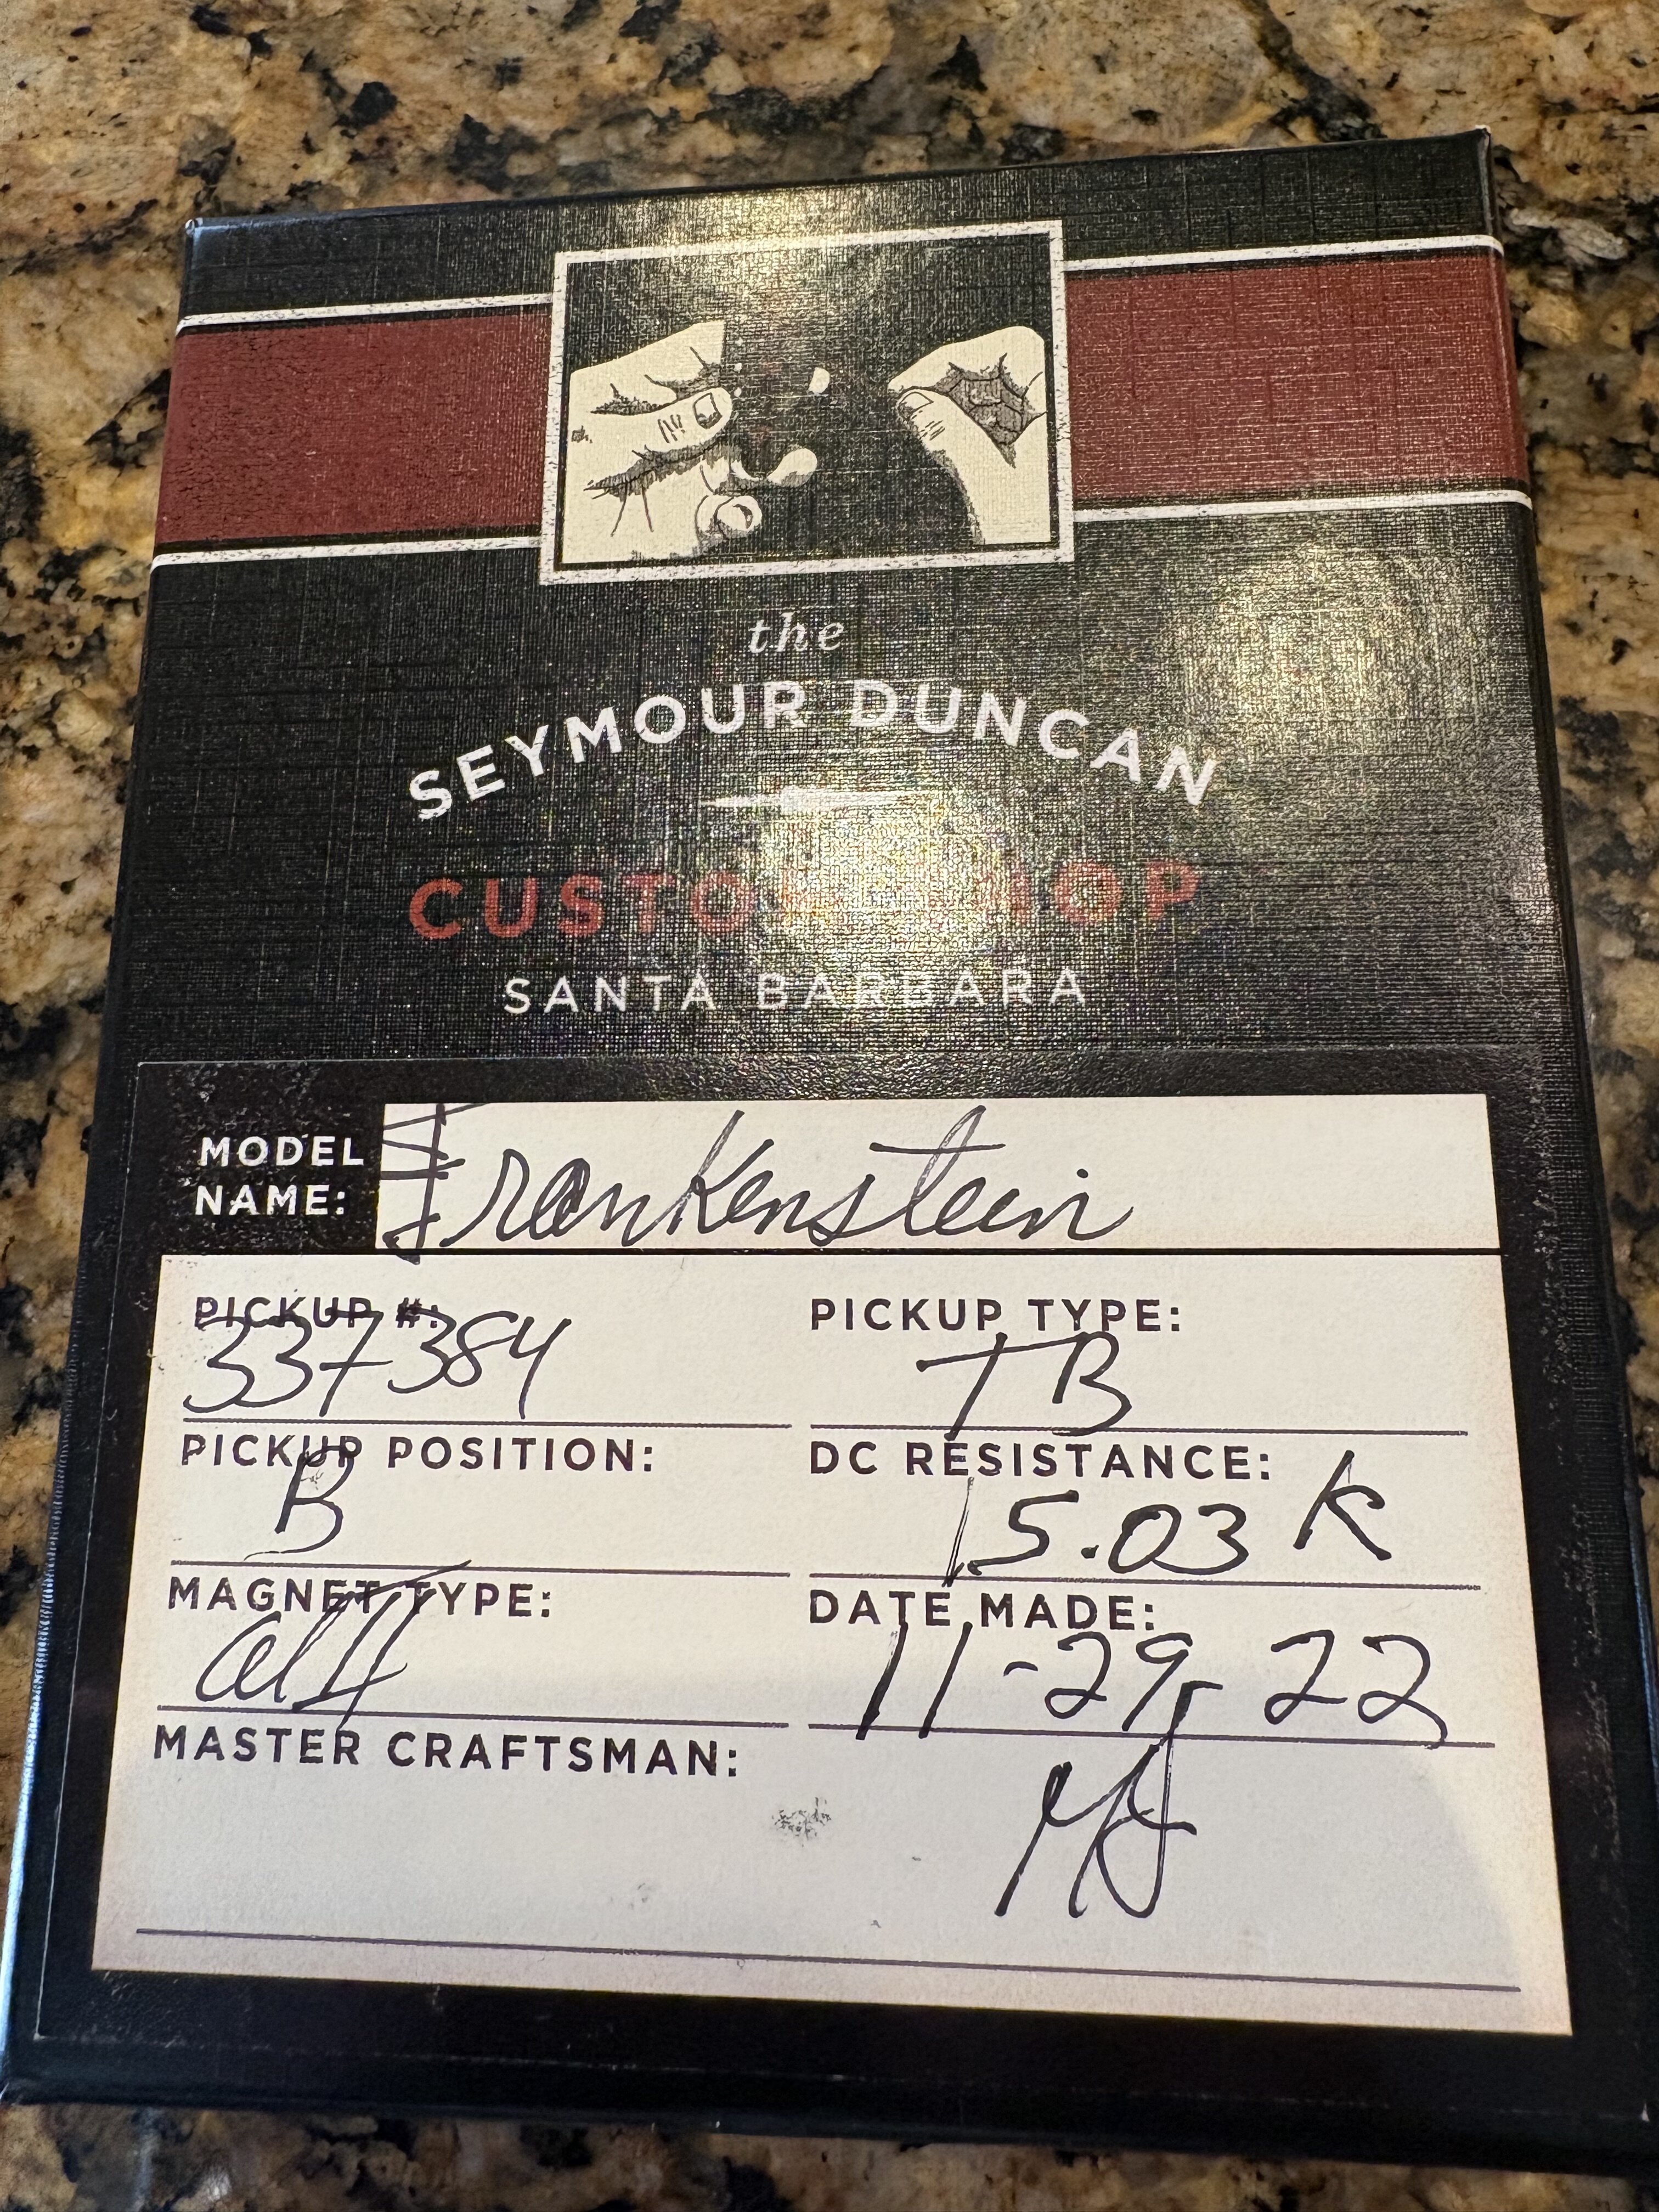 the
SEYMOUR DUNCAN
CUSTOM SHOP
SANTA BARBARA
MODEL NAME: Frankenstein
PICKUP #: 337384
PICKUP TYPE: TB
PICKUP POSITION: B
DC RESISTANCE: 15.03 K
MAGNET TYPE:
DATE MADE: 11-29-22
MASTER CRAFTSMAN: MJ